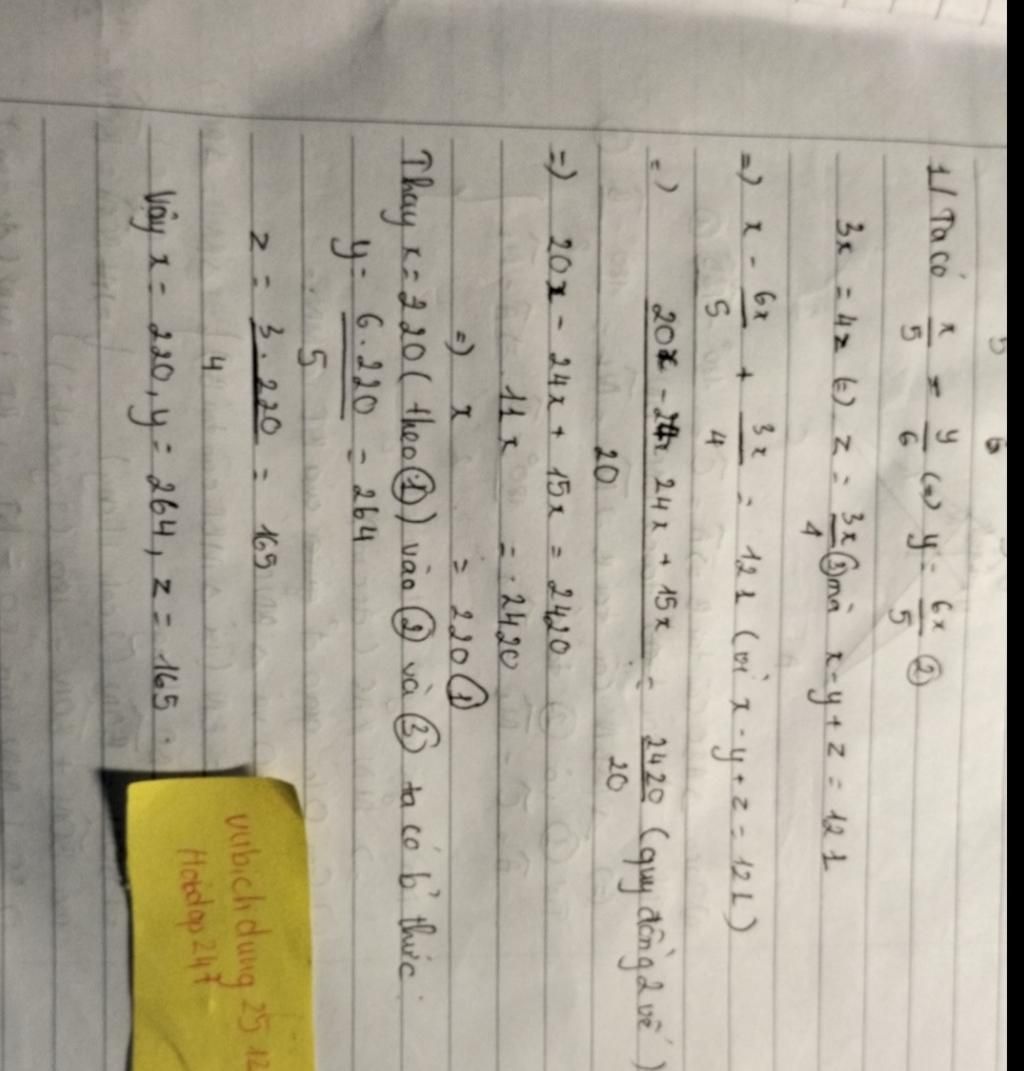 5 6
1/ Ta có x/5 = y/6 (=) y = 6x/5 ②
3x = 4z (=) z = 3x/4 ③ mà x - y + z = 121
=) x - 6x/5 + 3x/4 = 121 (vì x - y + z = 121)
=) 20x - 24x + 15x / 20 = 2420/20 (quy đồng 2 vế)
=) 20x - 24x + 15x = 2420
11x = 2420
=) x = 220 ①
Thay x = 220 (theo ①) vào ② và ③ ta có b' thức.
y = 6.220/5 = 264
z = 3.220/4 = 165
Vậy x = 220, y = 264, z = 165.
vubichdung 25 12
Hoidap247